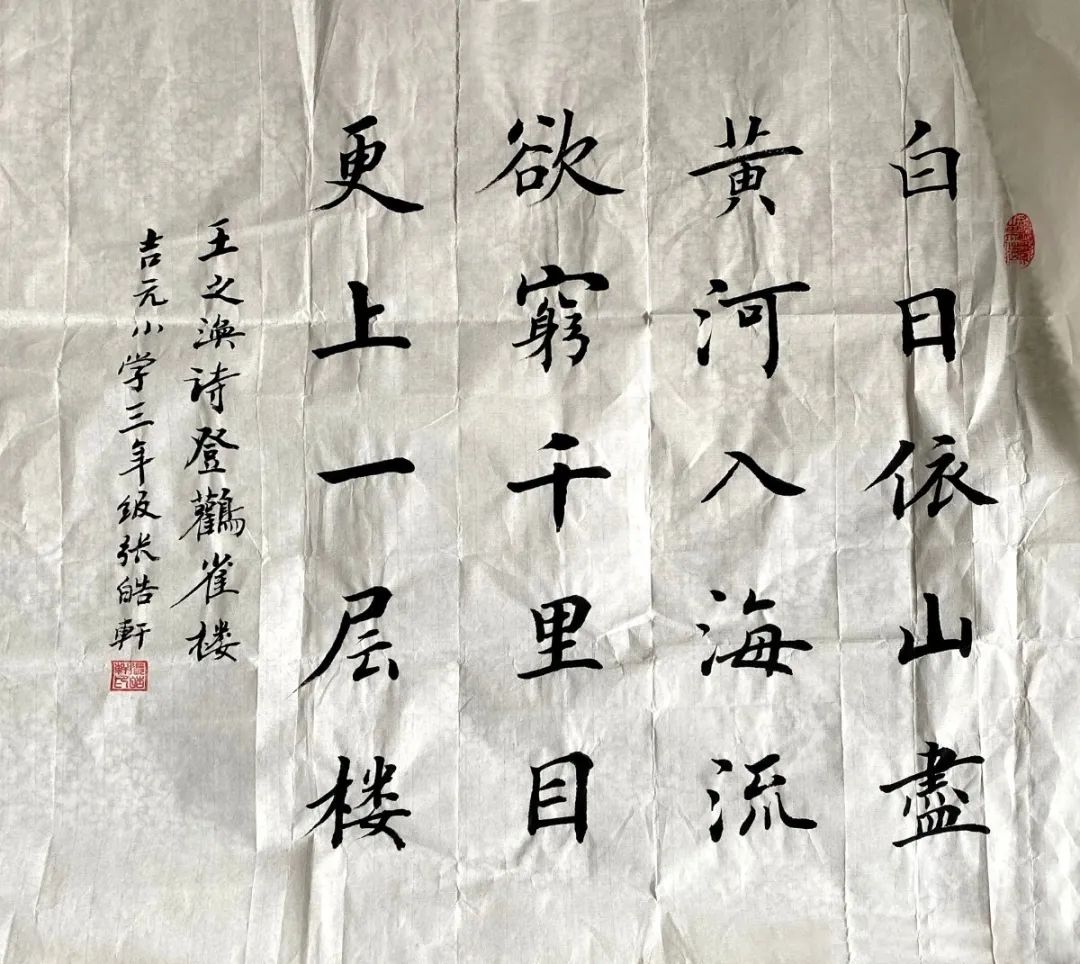 白日依山盡
黄河入海流
欲窮千里目
更上一层楼
王之渙诗登鸛雀楼
吉元小学三年级张皓軒